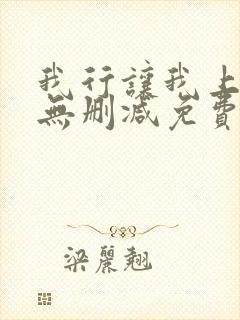 我行讓我上
無刪減免費
梁麗翹